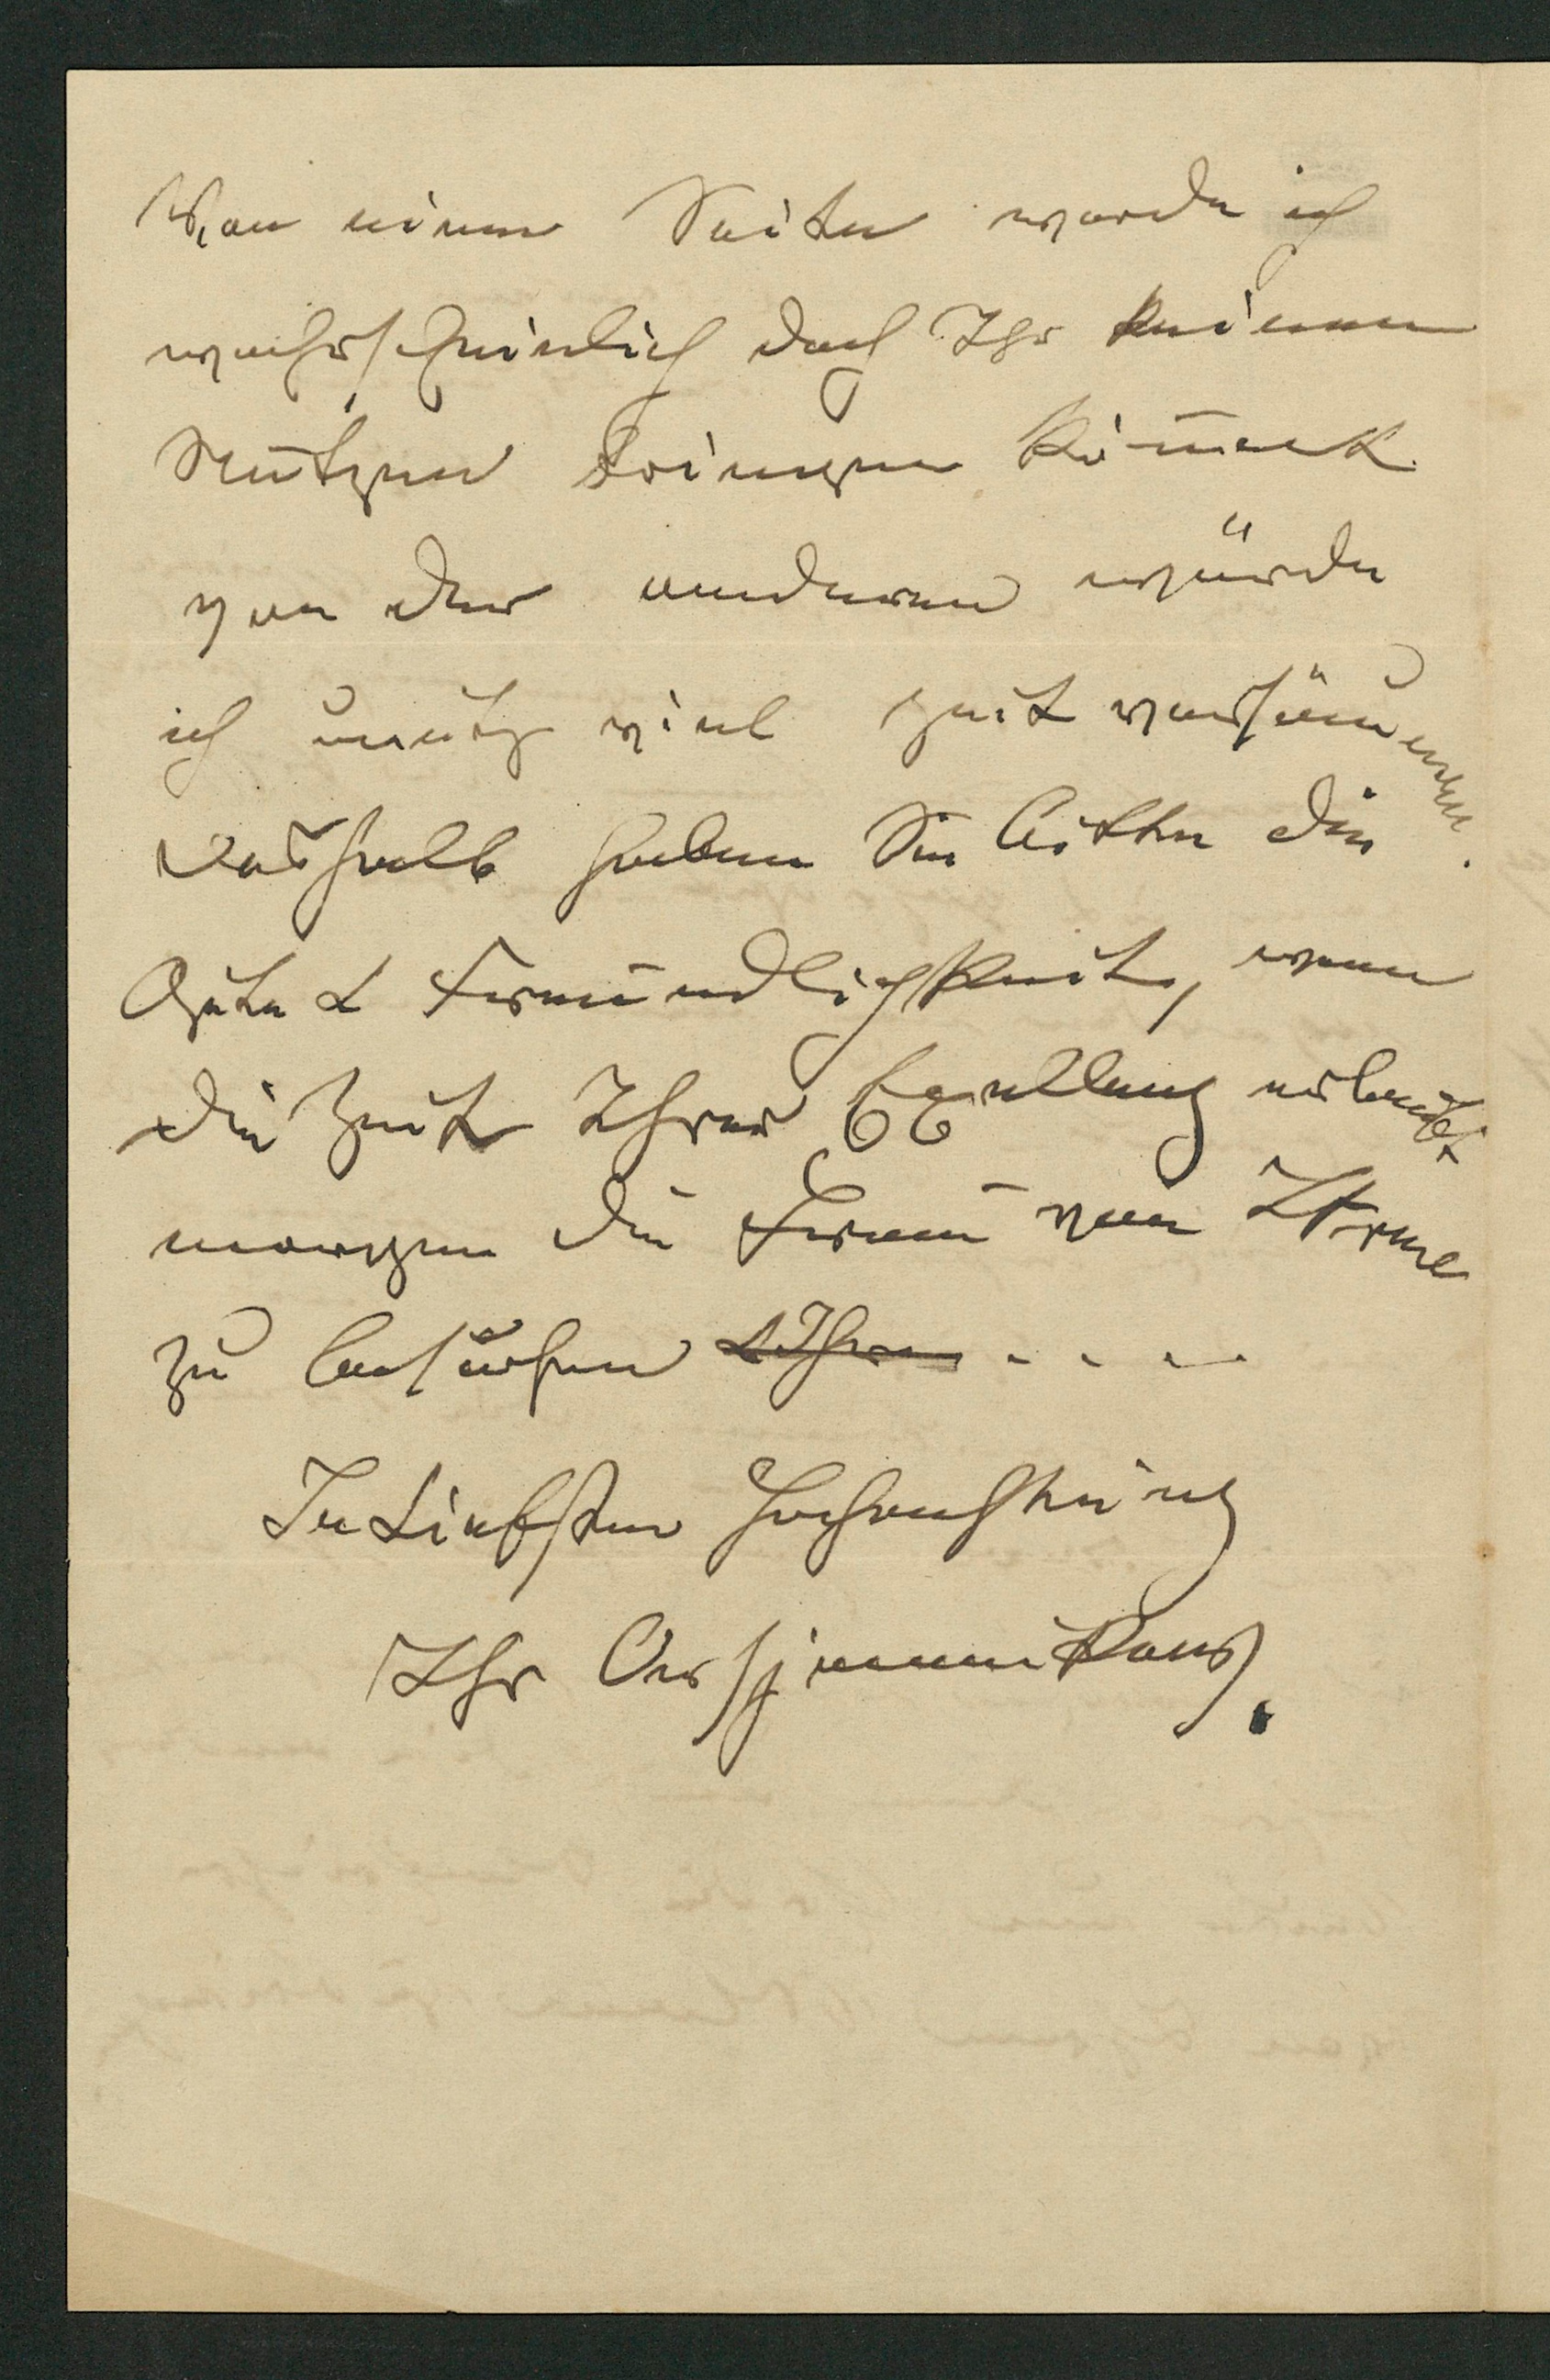 Von einer Seiten werde ich
wahrscheinlich doch Ihr keinen
Nutzen bringen können
von der anderen würde
ich unütz viel Zeit versäumen.
Deshalb haben Sie bitte die
Güte & Freundlichkeit, wenn
die Zeit Ihrer erlaubt
morgen die Frau von
zu besuchen & Ihren . . . .
In Liebster Hochachtung
Ihr